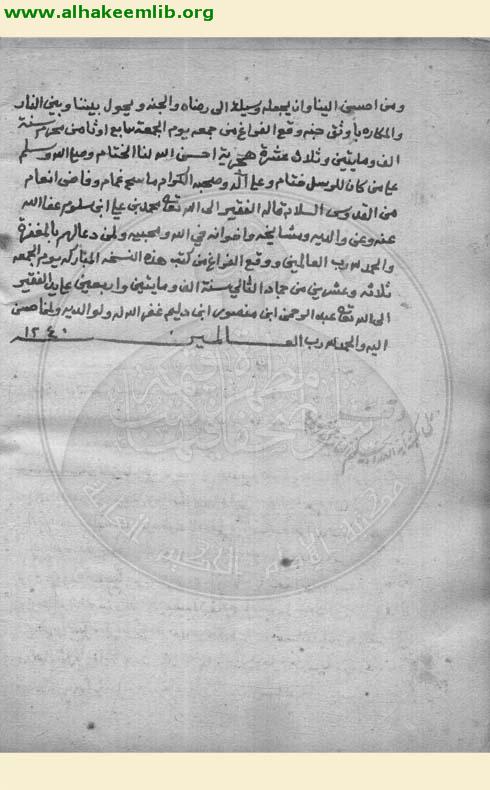 www.alhakeemlib.org
ومن احسن الينا وان يجعله وسيلة الى رضاه والجنه ويحول بيننا وبين النار
والمكاره باوثق جنه وقع الفراغ من جمعه يوم الجمعة سابع او ثامن محرم سنة
الف ومايتين وثلاث عشرة هجرية احسن الله لنا الختام وصلى الله وسلم
على من كان للرسل ختام وعلى آله وصحبه الكرام ما سح غمام وفاض انعام
من القدوس السلام قاله الفقير الى الله تعالى محمد بن علي ابن سلوم عفا الله
عنه وعن والديه ومشايخه واخوانه في الله ومحبيه ولمن دعا لهم بالمغفرة
والحمد لله رب العالمين ووقع الفراغ من كتب هذه النسخه المباركه يوم الجمعه
ثلاثه وعشرين من جماد الثاني سنة الف ومايتين واربعين على يد الفقير
الى الله تعالى عبد الرحمن ابن منصور ابن دايم غفر الله له ولوالديه ولمن احسن
اليه والحمد لله رب العـــالمين ١٢٤٠
مكتبة الإمام الحكيم العامة